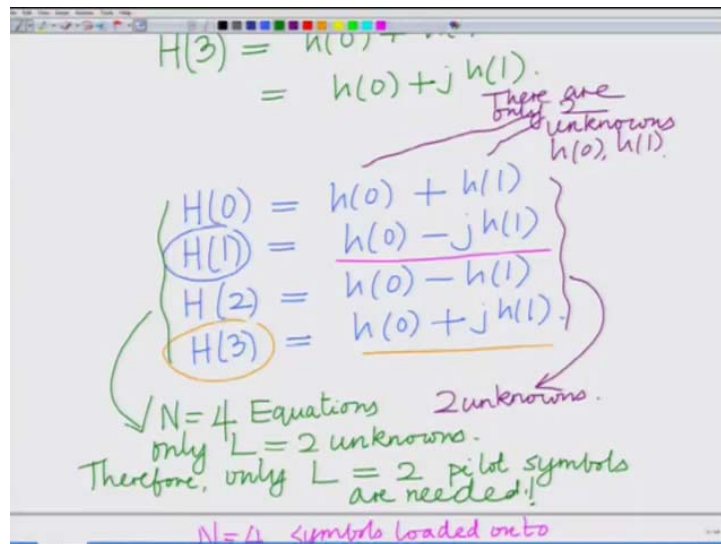 H(3) = h(0) +
= h(0) + j h(1).
There are
only 2
unknowns
h(0), h(1).
H(0) = h(0) + h(1)
H(1) = h(0) - j h(1)
H(2) = h(0) - h(1)
H(3) = h(0) + j h(1).
2 unknowns.
N=4 Equations
only L = 2 unknowns.
Therefore, only L = 2 pilot symbols
are needed!
N=4 symbols loaded onto